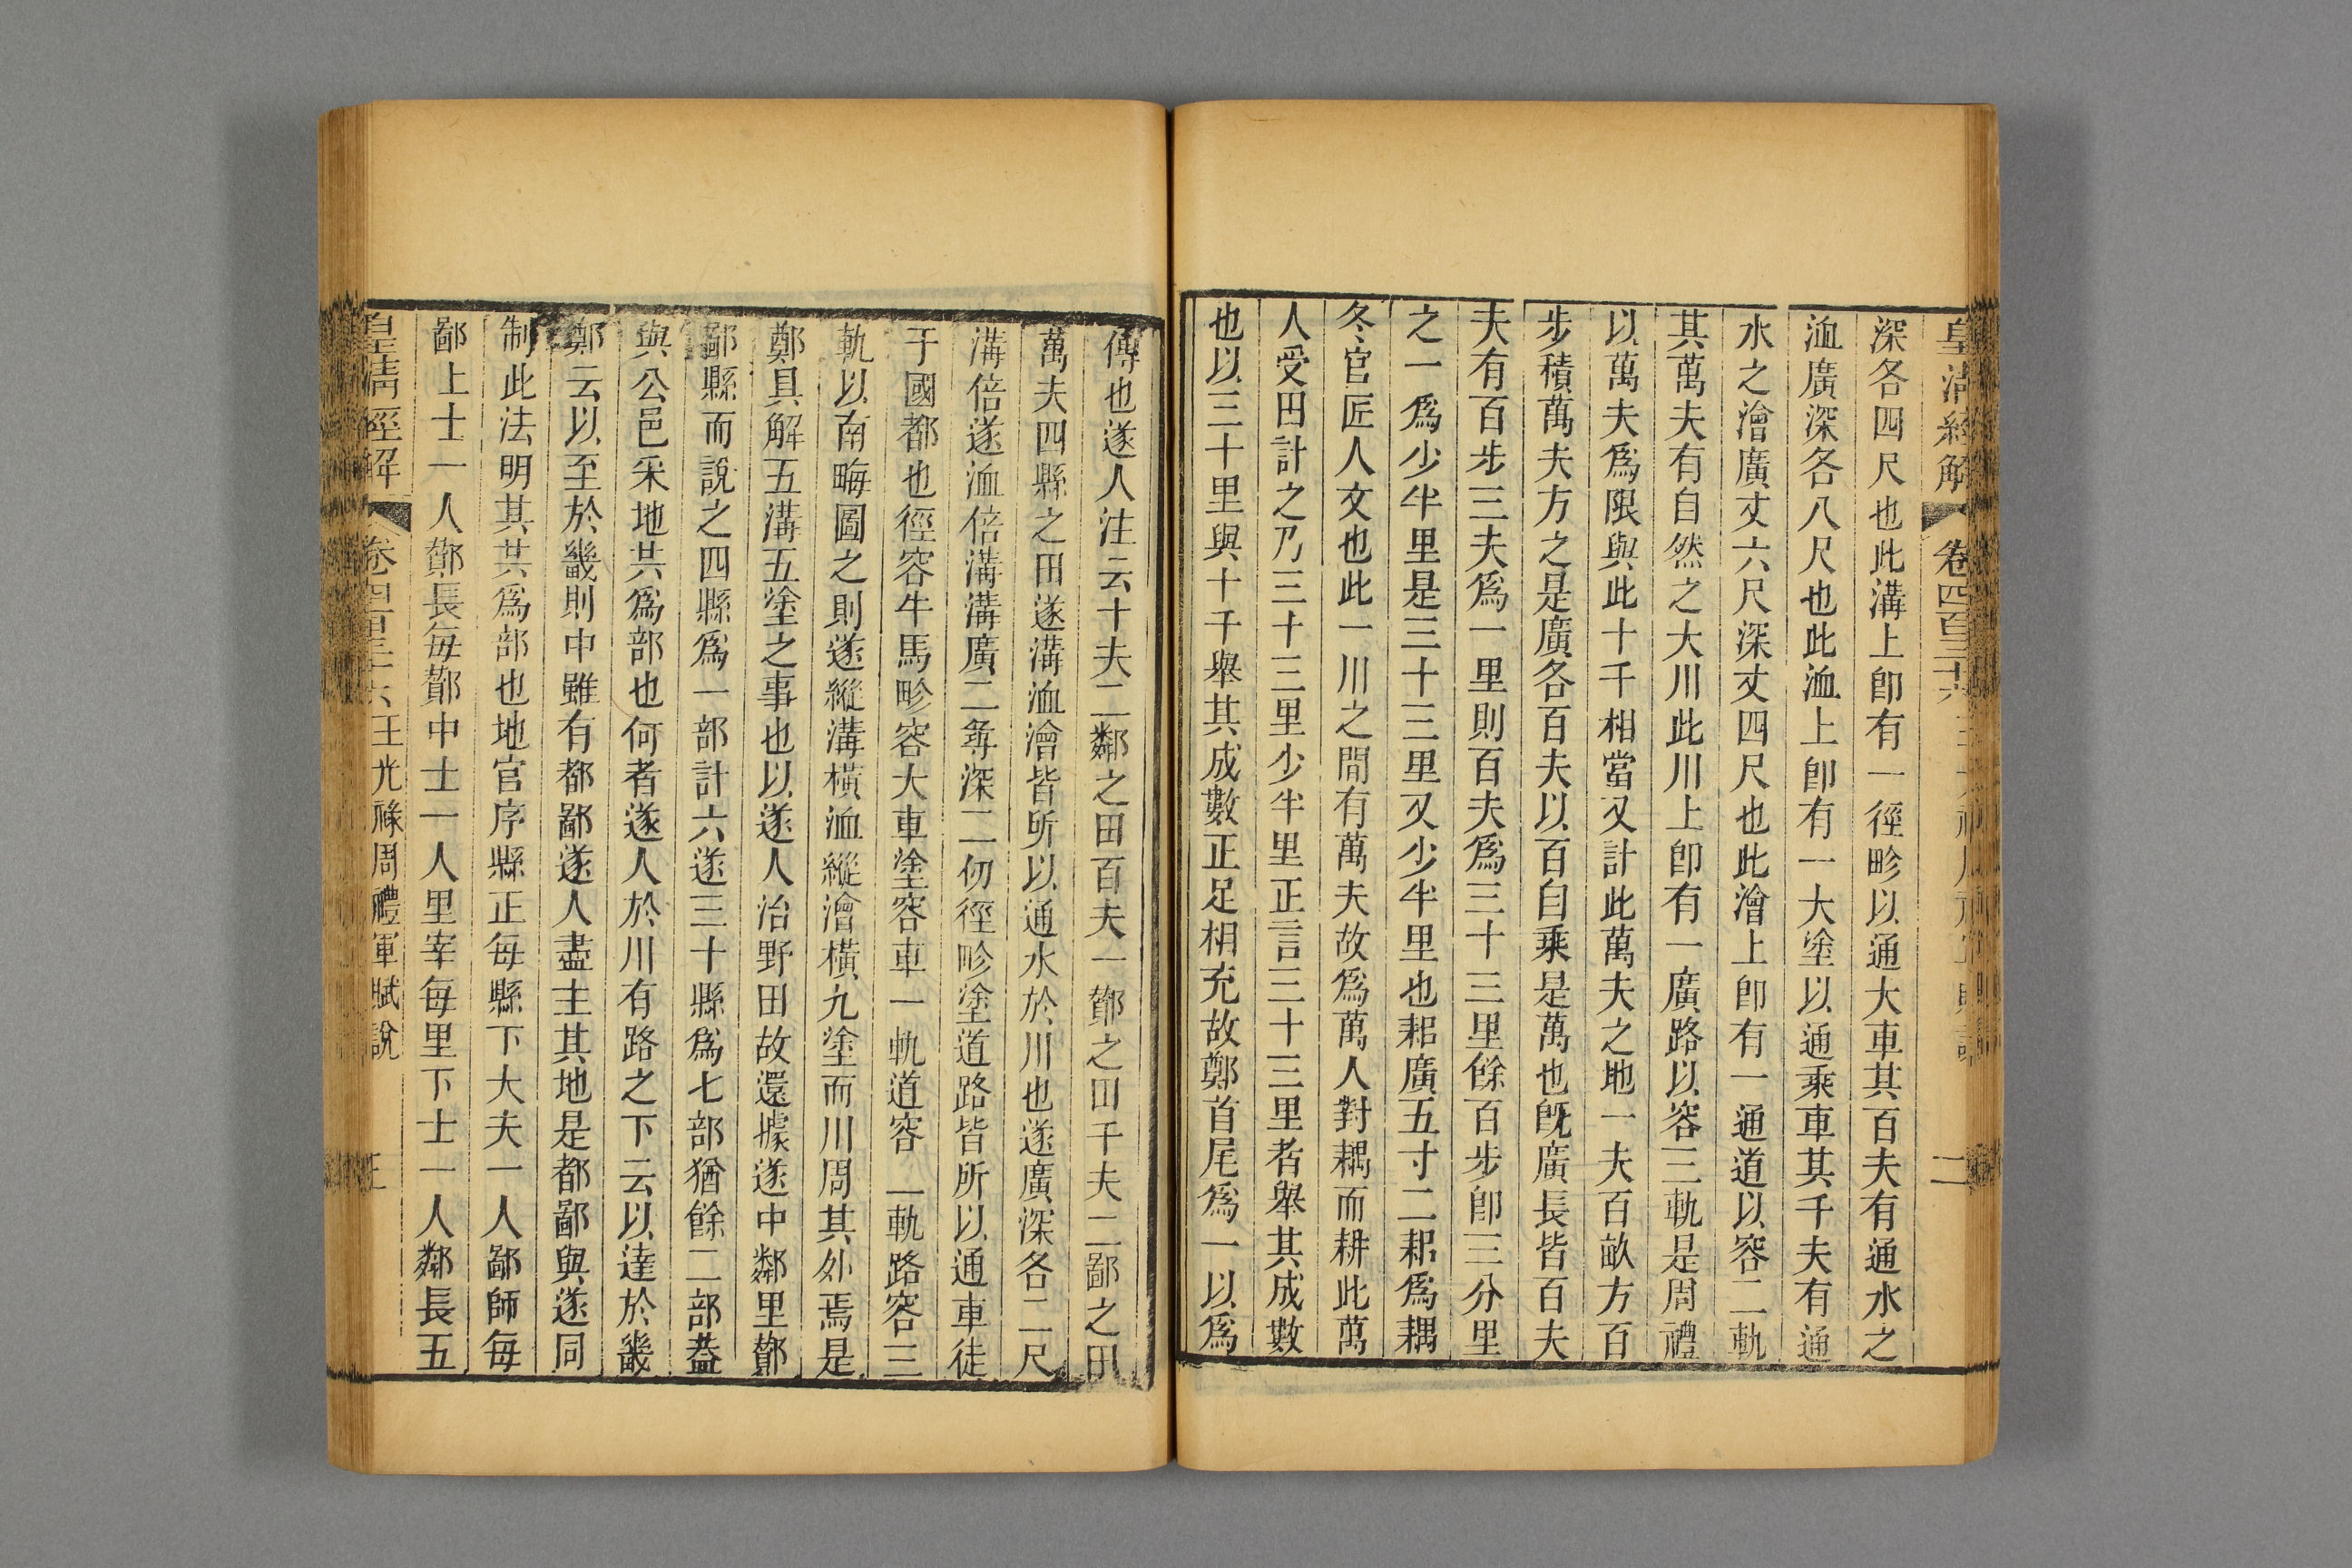 皇清經解 卷四百三十六 二
深各四尺也此溝上卽有一徑畛以通大車其百夫有通水之
洫廣深各八尺也此洫上卽有一大塗以通乘車其千夫有通
水之澮廣丈六尺深丈四尺也此澮上卽有一通道以容二軌
其萬夫有自然之大川此川上卽有一廣路以容三軌是周禮
以萬夫爲限與此十千相當又計此萬夫之地一夫百畝方百
步積萬夫方之是廣各百夫以百自乘是萬也旣廣長皆百夫
夫有百步三夫爲一里則百夫爲三十三里餘百步卽三分里
之一爲少半里是三十三里又少半里也耜廣五寸二耜爲耦
冬官匠人文也此一川之閒有萬夫故爲萬人對耦而耕此萬
人受田計之乃三十三里少半里正言三十三里者舉其成數
也以三十里與十千舉其成數正足相充故鄭首尾爲一以爲
傳也遂人注云十夫二鄰之田百夫一酇之田千夫二鄙之田
萬夫四縣之田遂溝洫澮皆所以通水於川也遂廣深各二尺
溝倍遂洫倍溝溝廣二尋深二仞徑畛塗道路皆所以通車徒
于國都也徑容牛馬畛容大車塗容車一軌道容二軌路容三
軌以南畮圖之則遂縱溝橫洫縱澮橫九塗而川周其外焉是
鄭具解五溝五塗之事也以遂人治野田故還據遂中鄰里酇
鄙縣而說之四縣爲一部計六遂三十縣爲七部猶餘二部蓋
與公邑采地共爲部也何者遂人於川有路之下云以達於畿
鄭云以至於畿則中雖有都鄙遂人盡主其地是都鄙與遂同
制此法明其共爲部也地官序縣正每縣下大夫一人鄙師每
鄙上士一人酇長每酇中士一人里宰每里下士一人鄰長五
皇清經解 卷四百三十六 王光祿周禮軍賦說